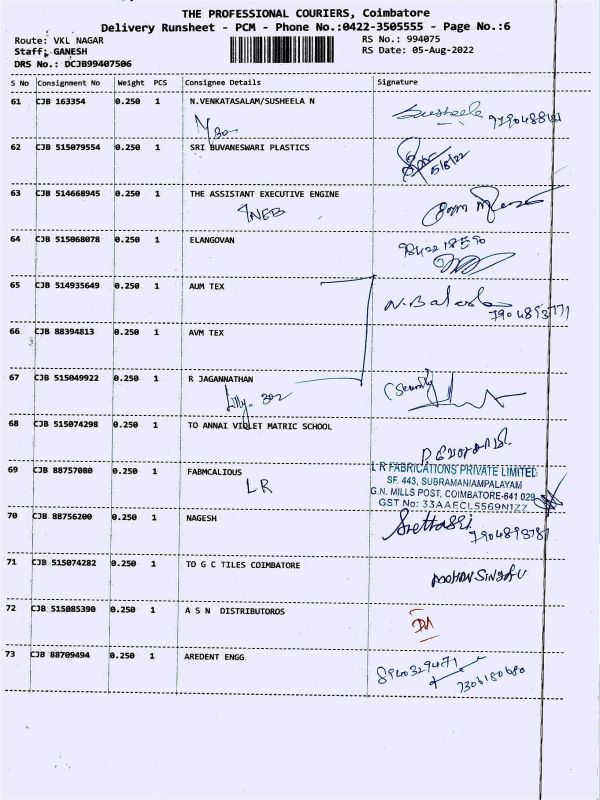 THE PROFESSIONAL COURIERS, Coimbatore
Delivery Runsheet - PCM - Phone No.:0422-3505555 - Page No.:6
Route: VKL NAGAR RS No.: 994075
Staff: GANESH RS Date: 05-Aug-2022
DRS No.: DCJB99407506
S No Consignment No Weight PCS Consignee Details Signature
61 CJB 163354 0.250 1 N.VENKATASALAM/SUSHEELA N Susheela
62 CJB 515079554 0.250 1 SRI BUVANESWARI PLASTICS 5/8/22
63 CJB 514668945 0.250 1 THE ASSISTANT EXECUTIVE ENGINE
TNEB
64 CJB 515068078 0.250 1 ELANGOVAN
65 CJB 514935649 0.250 1 AUM TEX
66 CJB 88394813 0.250 1 AVM TEX
67 CJB 515049922 0.250 1 R JAGANNATHAN (Security)
Lilly. 302
68 CJB 515074298 0.250 1 TO ANNAI VIOLET MATRIC SCHOOL
69 CJB 88757080 0.250 1 FABMCALIOUS
LR
L R FABRICATIONS PRIVATE LIMITED
SF. 443, SUBRAMANIAMPALAYAM
G.N. MILLS POST, COIMBATORE-641 029
GST No: 33AAECL5569N1ZZ
70 CJB 88756200 0.250 1 NAGESH
71 CJB 515074282 0.250 1 TO G C TILES COIMBATORE
72 CJB 515085390 0.250 1 A S N DISTRIBUTOROS
73 CJB 88709494 0.250 1 AREDENT ENGG
8940329471
7306180680